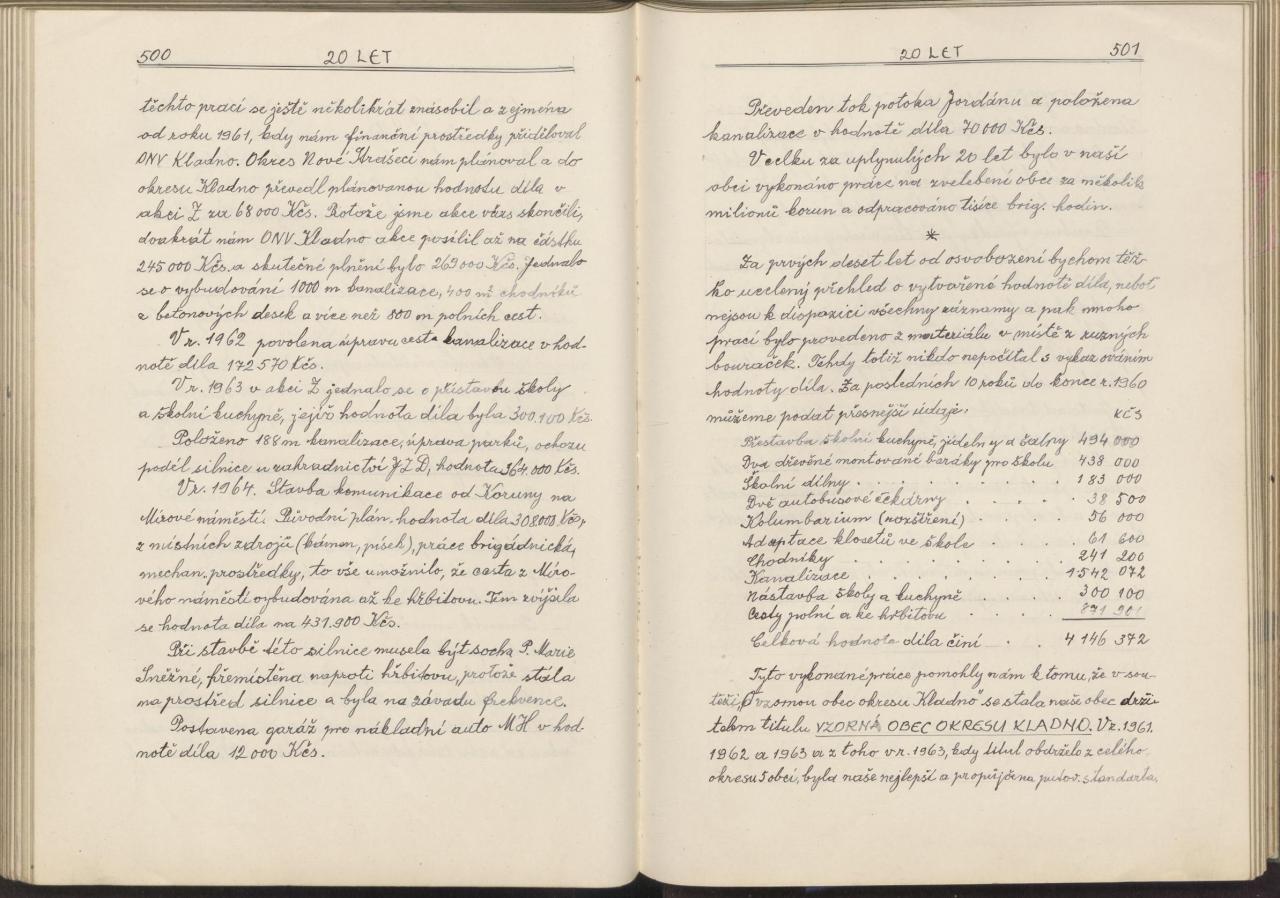 500
20 LET
těchto prací se ještě několikrát znásobil a zejména
od roku 1961, kdy nám finanční prostředky přiděloval
ONV Kladno. Okres Nové Strašecí nám plánoval a do
okresu Kladno převedl plánovanou hodnotu díla v
akci Z za 68 000 Kčs. Protože jsme akce včas skončili,
dvakrát nám ONV Kladno akce posílil až na částku
245 000 Kčs. a skutečné plnění bylo 269 000 Kčs. Jednalo
se o vybudování 1000 m kanalizace, 400 m² chodníků
z betonových desek a více než 800 m polních cest.
V r. 1962 povolena úprava cest a kanalizace v hod-
notě díla 172 570 Kčs.
V r. 1963 v akci Z jednalo se o přístavbu školy
a školní kuchyně, jejíž hodnota díla byla 300.100 Kčs.
Položeno 188 m kanalizace, úprava parků, ochozu
podél silnice u zahradnictví JZD, hodnota 364.000 Kčs.
V r. 1964. Stavba komunikace od Koruny na
Mírové náměstí. Původní plán. hodnota díla 308000 Kčs,
z místních zdrojů (kámen, písek), práce brigádnická,
mechan. prostředky, to vše umožnilo, že cesta z Míro-
vého náměstí vybudována až ke hřbitovu. Tím zvýšila
se hodnota díla na 431.900 Kčs.
Při stavbě této silnice musela být socha P. Marie
Sněžné, přemístěna naproti hřbitovu, protože stála
na prostřed silnice a byla na závadu frekvence.
Postavena garáž pro nákladní auto MH v hod-
notě díla 12 000 Kčs.
20 LET
501
Převeden tok potoka Jordánu a položena
kanalizace v hodnotě díla 70 000 Kčs.
V celku za uplynulých 20 let bylo v naší
obci vykonáno práce na zvelebení obce za několik
milionů korun a odpracováno tisíce brig. hodin.
*
Za prvých deset let od osvobození bychom těž-
ko ucelený přehled o vytvořené hodnotě díla, neboť
nejsou k dispozici všechny záznamy a pak mnoho
prací bylo provedeno z materiálu v místě z ruzných
bouraček. Tehdy totiž nikdo nepočítal s vykazováním
hodnoty díla. Za posledních 10 roků do konce r. 1960
můžeme podat přesnější údaje:
KČS
Přestavba školní kuchyně, jídelny a šatny 494 000
Dva dřevěné montované baráky pro školu 438 000
Školní dílny . . . . . . . . 183 000
Dvě autobusové čekárny . . . . 38 500
Kolumbarium (rozšíření) . . . . 56 000
Adaptace klosetů ve škole . . . . 61 600
Chodníky . . . . . . . . 241 200
Kanalizace . . . . . . . 1 542 072
Nástavba školy a kuchyně . . . . 300 100
Cesty polní a ke hřbitovu . . . . 871 901
Celková hodnota díla činí . . 4 146 372
Tyto vykonané práce pomohly nám k tomu, že v sou-
těži „O vzornou obec okresu Kladno" se stala naše obec drži-
telem titulu VZORNÁ OBEC OKRESU KLADNO. V r. 1961.
1962 a 1963 a z toho v r. 1963, kdy titul obdrželo z celého
okresu 5 obcí, byla naše nejlepší a propůjčena putov. standarta.